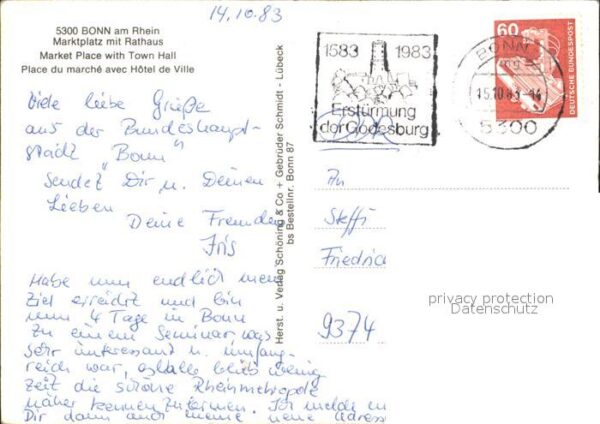 14.10.83
5300 BONN am Rhein
Marktplatz mit Rathaus
Market Place with Town Hall
Place du marché avec Hôtel de Ville
Viele liebe Grüße
aus der Bundeshaupt-
stadt "Bonn"
sendet Dir u. Deinen
Lieben
Deine Freundin
Iris
Habe nun endlich mein
Ziel erreicht und bin
nun 4 Tage in Bonn
Zu einem Seminar was
sehr interessant u. umfang-
reich war, deshalb blieb wenig
Zeit die schöne Rheinmetropole
näher kennenzulernen. Ich melde m
Dir dann auch meine neue Adress
Herst. u. Verlag Schöning & Co + Gebrüder Schmidt - Lübeck
bs Bestellnr. Bonn 87
1583 1983
Erstürmung
der Godesburg
BONN
15.10.83
5300
60
DEUTSCHE BUNDESPOST
An
Steffi
Friedric
9374
privacy protection
Datenschutz